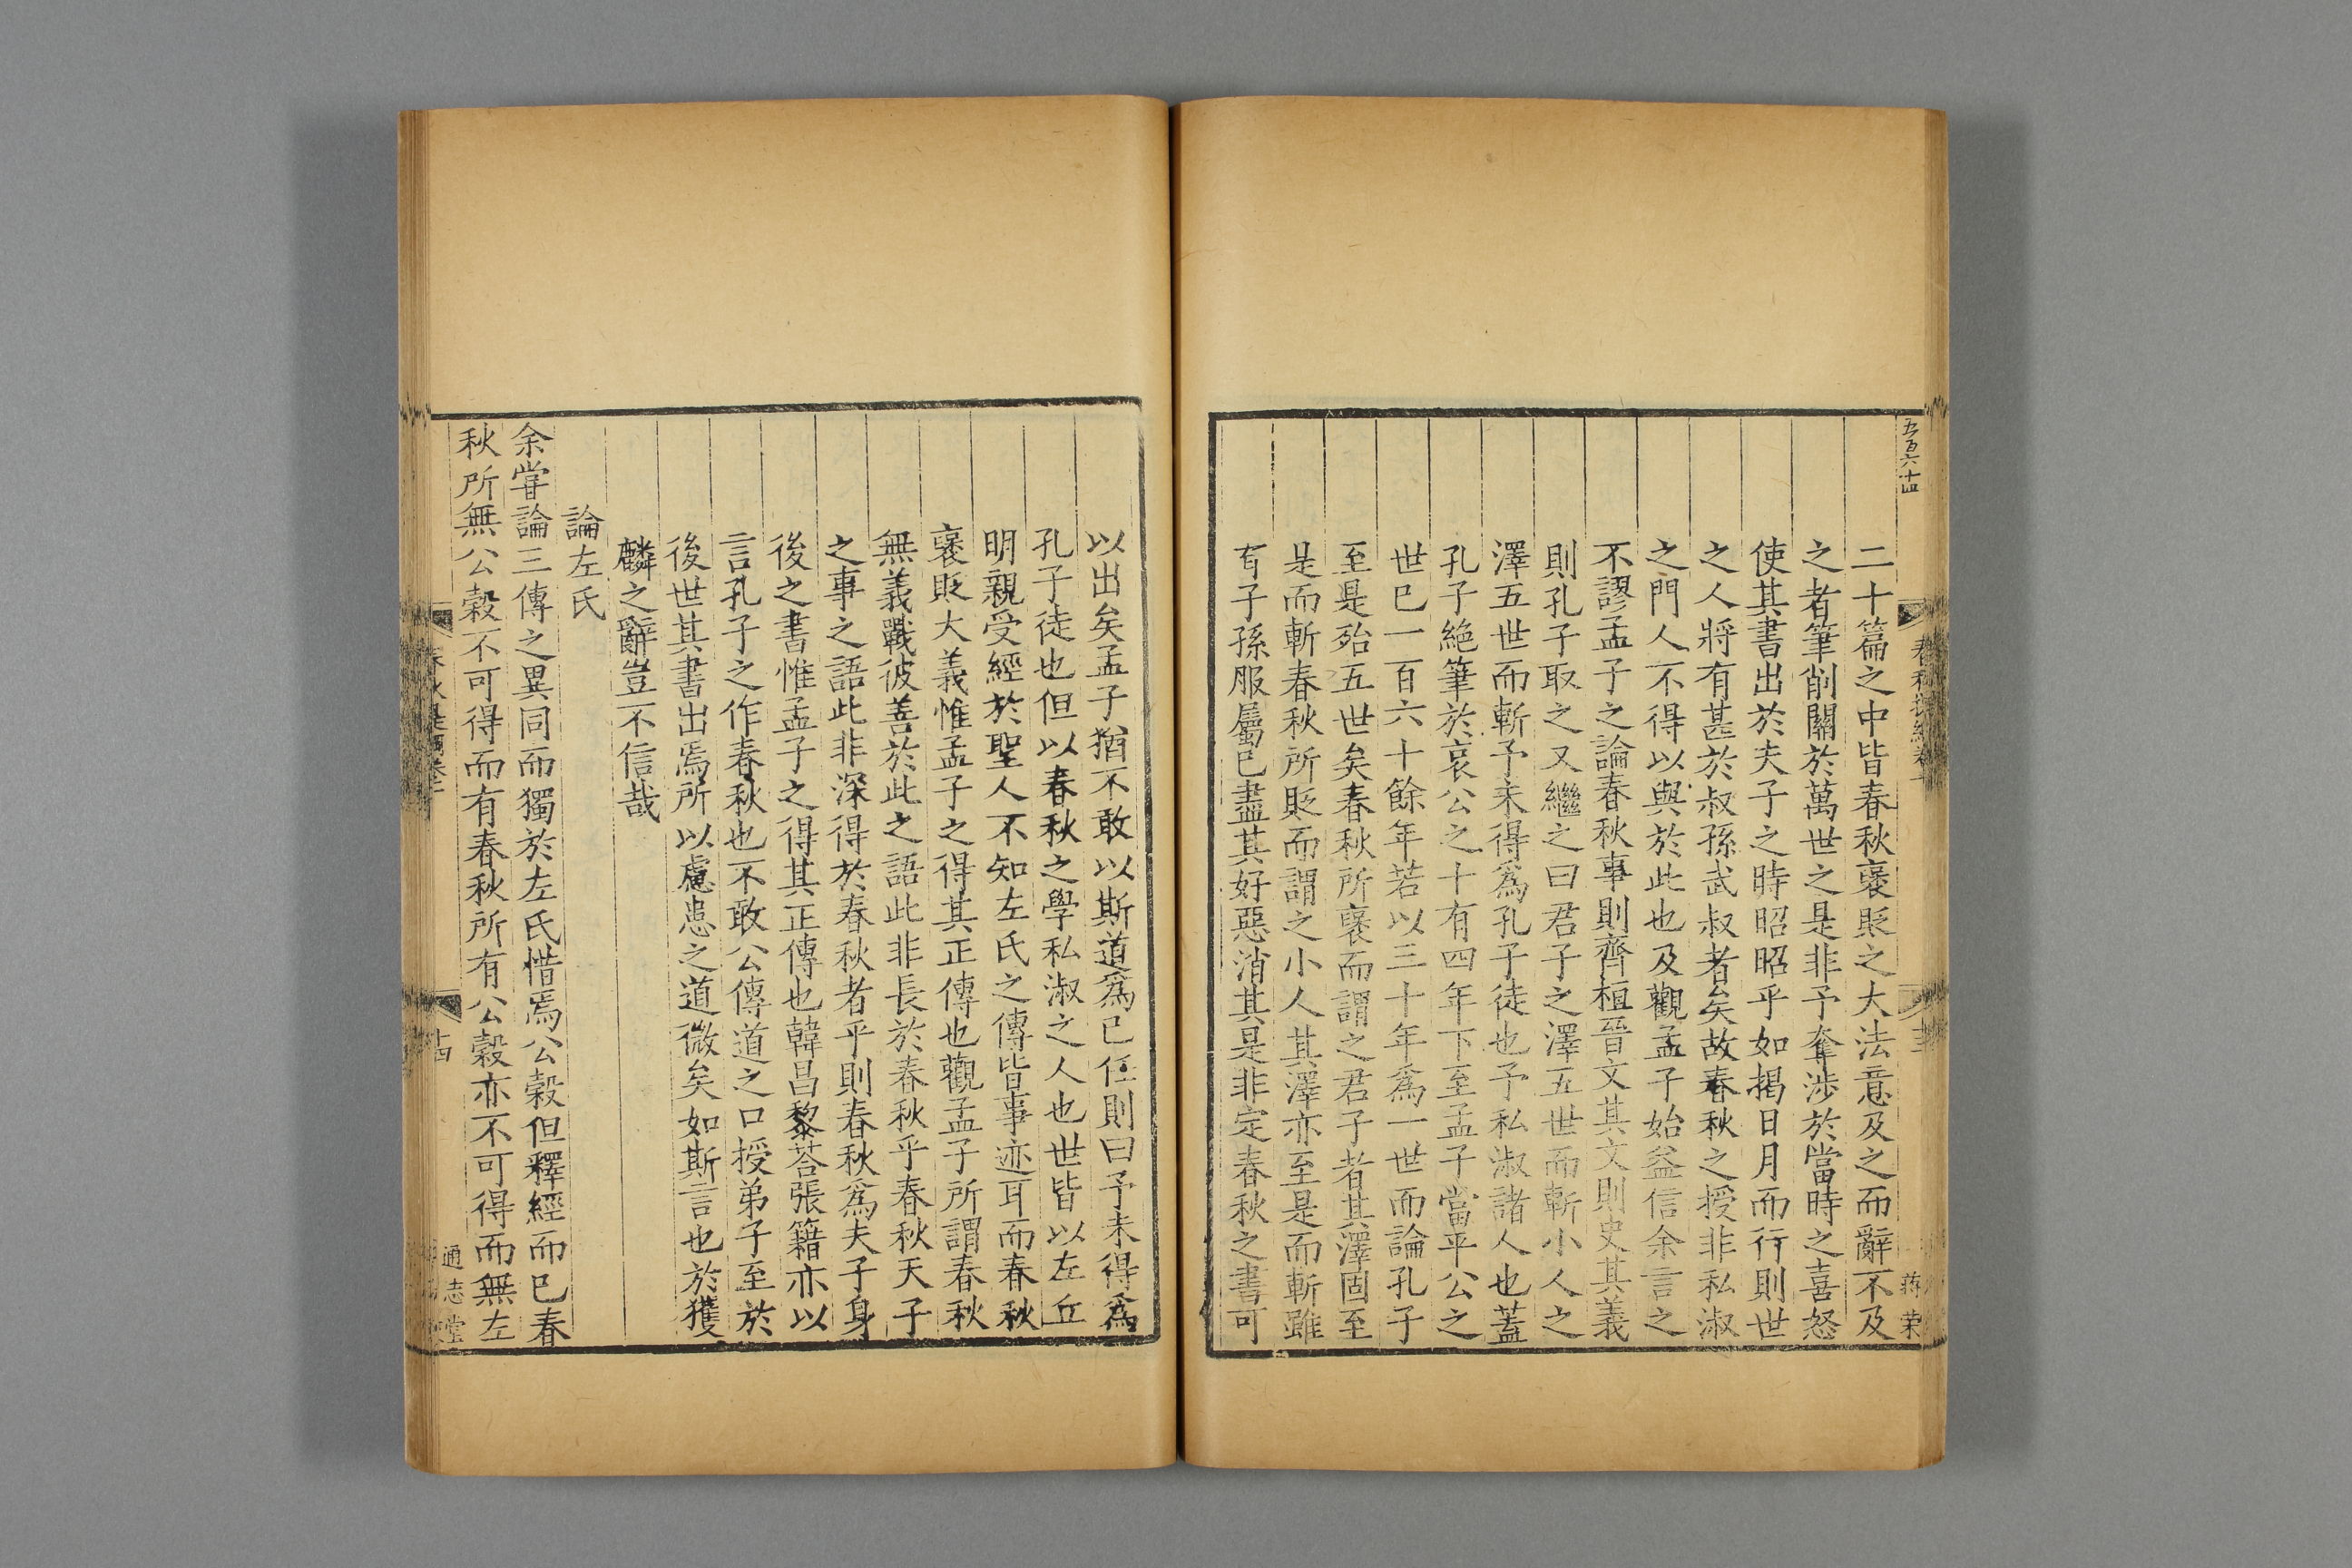 五百六十四
二十篇之中皆春秋襃貶之大法意及之而辭不及
之者筆削關於萬世之是非予奪涉於當時之喜怒
使其書出於夫子之時昭昭乎如揭日月而行則世
之人將有甚於叔孫武叔者矣故春秋之授非私淑
之門人不得以與於此也及觀孟子始益信余言之
不謬孟子之論春秋事則齊桓晉文其文則史其義
則孔子取之又繼之曰君子之澤五世而斬小人之
澤五世而斬予未得爲孔子徒也予私淑諸人也蓋
孔子絶筆於哀公之十有四年下至孟子當平公之
世已一百六十餘年若以三十年爲一世而論孔子
至是殆五世矣春秋所襃而謂之君子者其澤固至
是而斬春秋所貶而謂之小人其澤亦至是而斬雖
有子孫服屬已盡其好惡消其是非定春秋之書可
以出矣孟子猶不敢以斯道爲已任則曰予未得爲
孔子徒也但以春秋之學私淑之人也世皆以左丘
明親受經於聖人不知左氏之傳皆事迹耳而春秋
襃貶大義惟孟子之得其正傳也觀孟子所謂春秋
無義戰彼善於此之語此非長於春秋乎春秋天子
之事之語此非深得於春秋者乎則春秋爲夫子身
後之書惟孟子之得其正傳也韓昌黎荅張籍亦以
言孔子之作春秋也不敢公傳道之口授弟子至於
後世其書出焉所以慮患之道微矣如斯言也於獲
麟之辭豈不信哉
論左氏
余甞論三傳之異同而獨於左氏惜焉公穀但釋經而已春
秋所無公穀不可得而有春秋所有公穀亦不可得而無左
十四
通志堂